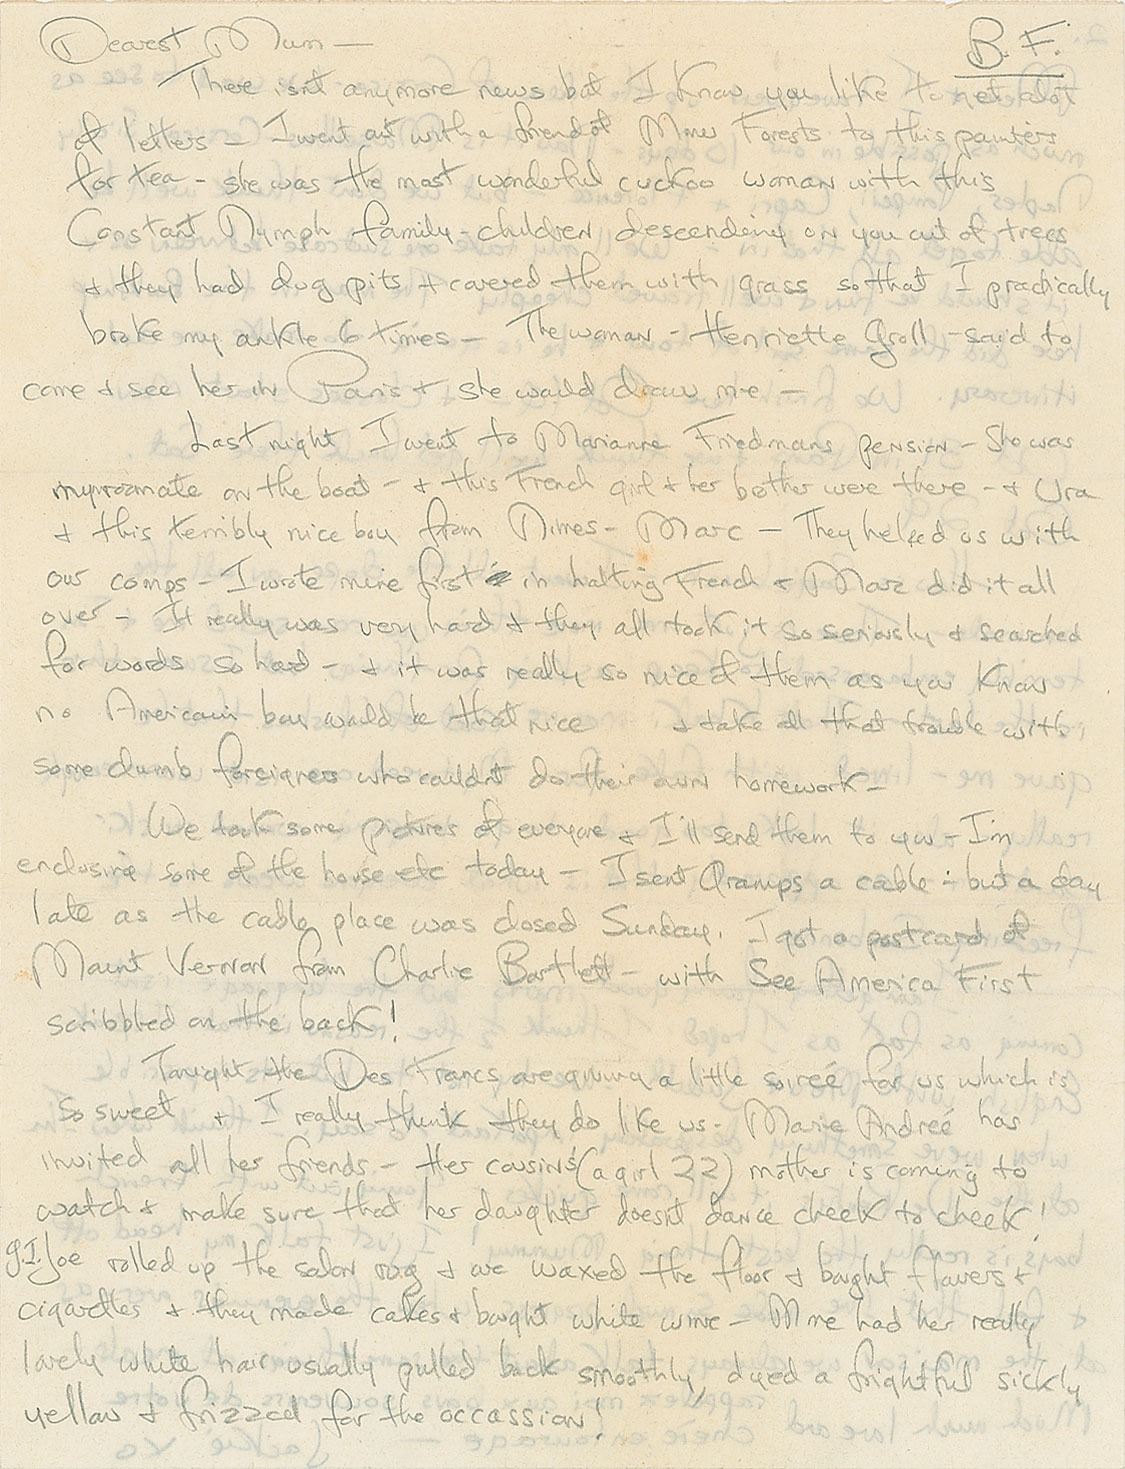 Dearest Mum —
B. F.
There isn't anymore news but I know you like to get alot
of letters — I went out with a friend of Mme Forests to this painters
for tea — she was the most wonderful cuckoo woman with this
Constant Nymph family - children descending on you out of trees
+ they had dug pits + covered them with grass so that I practically
broke my ankle 6 times — The woman - Henriette Groll - said to
come + see her in Paris + she would draw me —
Last night I went to Marianne Friedmans pension — She was
my roomate on the boat — + this French girl + her bother were there — +
+ this terribly nice boy from Nimes — Marc — They helped us with
our comps — I wrote mine first in halting French + Marc did it all
over — It really was very hard + they all took it so seriously + searched
for words so hard — + it was really so nice of them as you know
no American boy would be that nice + take all that trouble with
some dumb foreigners who couldnt do their own homework —
We took some pictures of everyone + I'll send them to you — I'm
enclosing some of the house etc today — I sent Gramps a cable - but a day
late as the cable place was closed Sunday. I got a postcard of
Mount Vernon from Charlie Bartlett — with See America First
scribbled on the back!
Tonight the Des Francs are giving a little soireé for us which is
so sweet + I really think they do like us — Marie Andreé has
invited all her friends — Her cousins' (a girl 22) mother is coming to
watch + make sure that her daughter doesnt dance cheek to cheek!
G.I. Joe rolled up the salon rug + we waxed the floor + bought flowers +
cigarettes + they made cakes + bought white wine — Mme had her really
lovely white hair usually pulled back smoothly, dyed a frightful sickly
yellow + frizzed for the occassion!